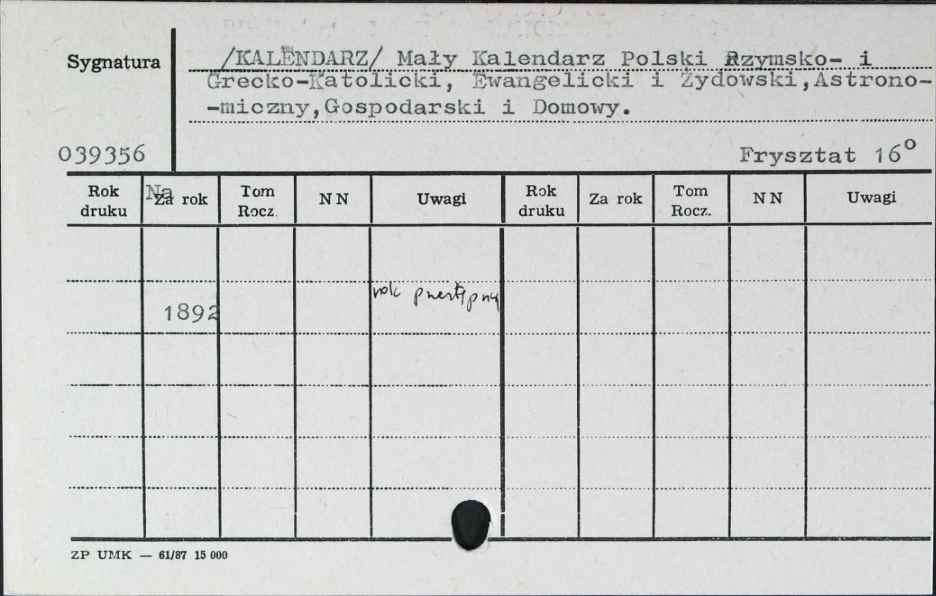 Sygnatura
/KALENDARZ/ Mały Kalendarz Polski Rzymsko- i
Grecko-Katolicki, Ewangelicki i Żydowski,Astrono-
-miczny,Gospodarski i Domowy.
039356
Frysztat 16°
Rok druku Na Za rok Tom Rocz. NN Uwagi Rok druku Za rok Tom Rocz. NN Uwagi
1892 rok przestępny
ZP UMK — 61/87 15 000